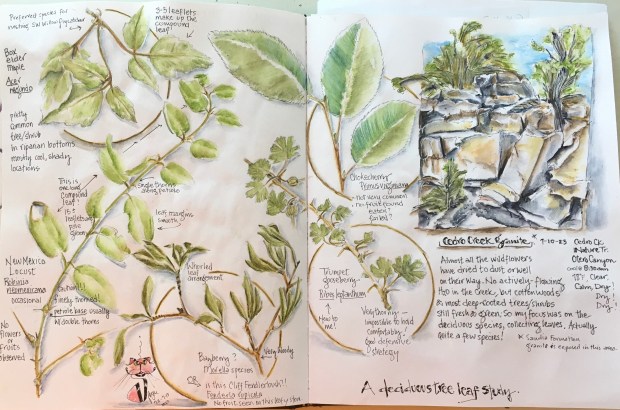 Preferred species for
nesting
3-5 leaflets
make up the
compound
leaf!
Box
elder
Maple
Acer
negundo
pretty
common
tree/shrub
in riparian bottoms
mostly cool, shady
locations
This is
one long
compound
leaf!
15+
leaflets
green
Single thorns
along petiole
leaf margins
smooth
New Mexico
Locust
Robinia
neomexicana
occasional
petiole base usually
w/ double thorns
No
flowers
or
fruits
observed
Whorled
arrangement
Very woody
Bayberry?
Morella species
OR
is this Cliff Fendlerbush!!
Fendlera rupicola
No fruit seen on this
Chokecherry
Prunus virginiana
not very common
no fruit found
eaten?
for bird?
Trumpet
gooseberry
Ribes leptanthum
New to
me!
Very thorny -
impossible to hold
comfortably!
Good defensive
strategy
Cedro Creek granite * 7-10-23
Cedro Ck.
Nature Tr.
Otero Canyon
Clear
Calm, Dry
Dry!
Dry!
Almost all the wildflowers
have dried to dust or well
on their way. No actively-flowing
H2O in the creek, but cottonwoods
& most deep-rooted trees/shrubs
still fresh & green. So my focus was on the
deciduous species, collecting leaves. Actually,
quite a few species!
* Sandia Formation
granite is exposed in this area.
A deciduous tree leaf study...